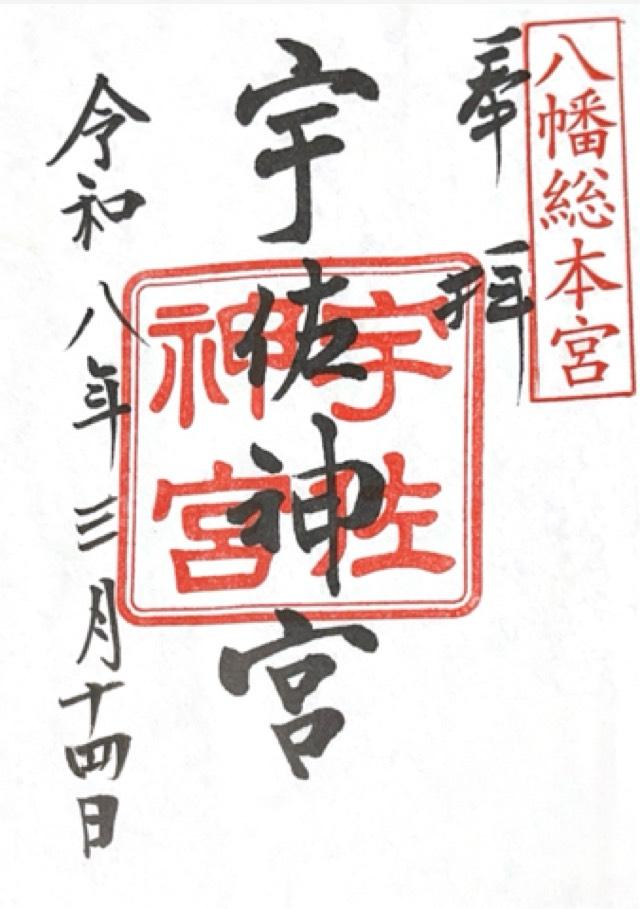 八幡総本宮
奉拝
宇佐神宮
宇佐
神宮
令和八年三月十四日